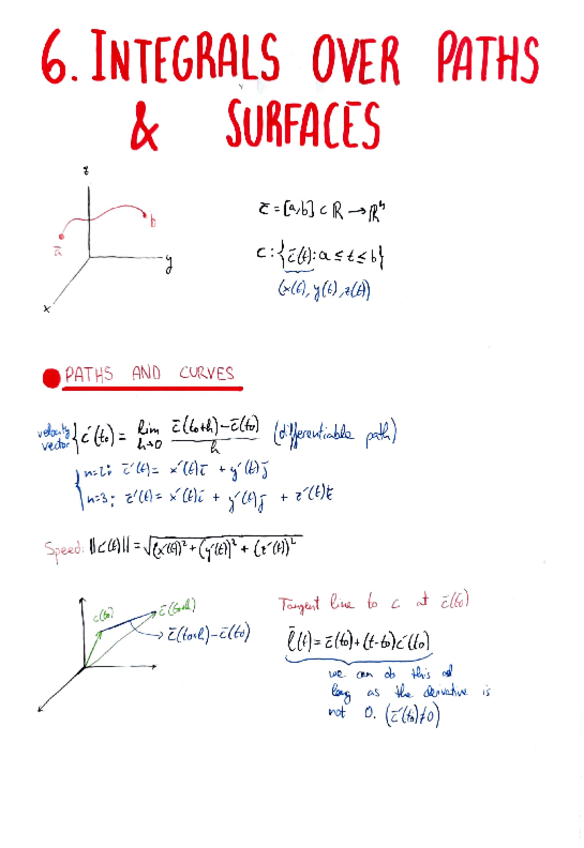 6. INTEGRALS OVER PATHS
& SURFACES
z
a̅
b
y
x
c̅ = [a,b] ⊂ ℝ → ℝⁿ
C: {c̅(t): a ≤ t ≤ b}
(x(t), y(t), z(t))
PATHS AND CURVES
velocity vector { c̅'(t₀) = lim h→0 (c̅(t₀+h) - c̅(t₀))/h (differentiable path)
n=2: c̅'(t) = x'(t)i̅ + y'(t)j̅
n=3: c̅'(t) = x'(t)i̅ + y'(t)j̅ + z'(t)k̅
Speed: ||c'(t)|| = √((x'(t))² + (y'(t))² + (z'(t))²)
c(t₀)
c̅(t₀+h)
c̅(t₀+h) - c̅(t₀)
Tangent line to c at c̅(t₀)
l̅(t) = c̅(t₀) + (t-t₀)c̅'(t₀)
we can do this as
long as the derivative is
not 0. (c̅'(t₀)≠0)